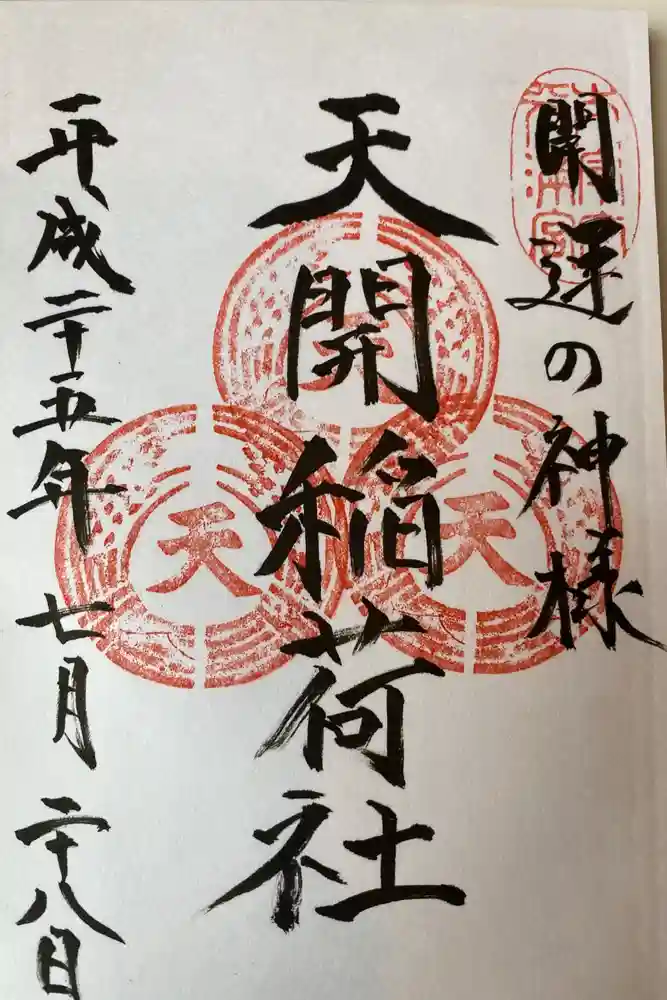 開運の神様
天開稲荷社
平成二十五年 七月 二十八日
天
天